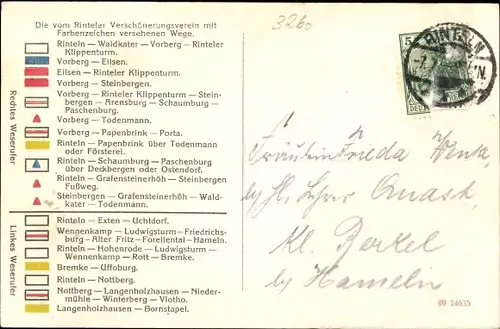 Die vom Rinteler Verschönerungsverein mit
Farbenzeichen versehenen Wege.
3260
RINTELN
Rechtes Weserufer
Rinteln — Waldkater — Vorberg — Rinteler
Klippenturm.
Vorberg — Eilsen.
Eilsen — Rinteler Klippenturm.
Vorberg — Steinbergen.
Vorberg — Rinteler Klippenturm — Stein-
bergen — Arensburg — Schaumburg —
Paschenburg.
Vorberg — Todenmann.
Vorberg — Papenbrink — Porta.
Rinteln — Papenbrink über Todenmann
oder Försterei.
Rinteln — Schaumburg — Paschenburg
über Deckbergen oder Ostendorf.
Rinteln — Grafensteinerhöh — Steinbergen
Fußweg.
Steinbergen — Grafensteinerhöh — Wald-
kater — Todenmann.
Linkes Weserufer
Rinteln — Exten — Uchtdorf.
Wennenkamp — Ludwigsturm — Friedrichs-
burg — Alter Fritz — Forellental — Hameln.
Rinteln — Hohenrode — Ludwigsturm —
Wennenkamp — Rott — Bremke.
Bremke — Uffoburg.
Rinteln — Nottberg.
Nottberg — Langenholzhausen — Nieder-
mühle — Winterberg — Vlotho.
Langenholzhausen — Bornstapel.
Fräulein Frieda
Kl. Berkel
by Hameln
09 24635